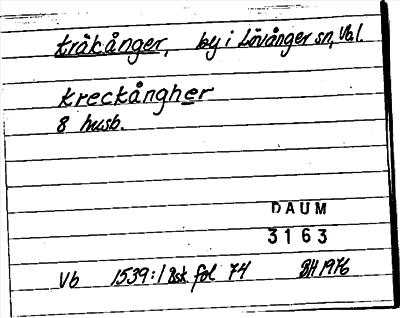 Kråkånger, by i Lövånger sn, Vbl.
Kreckångher
8 husb.
DAUM
3163
Vb 1539:1 Bsk fol 74 BH 1976